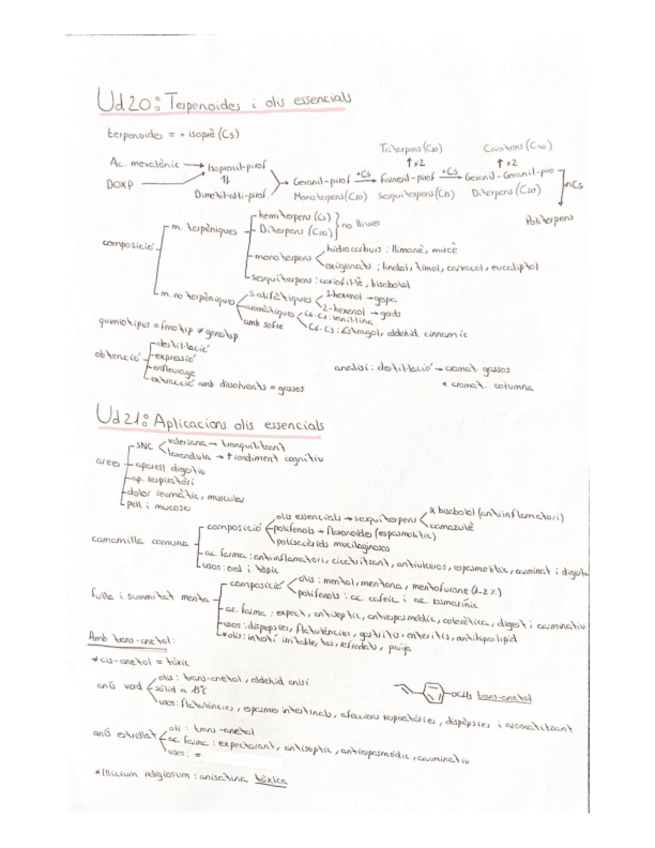 Ud 20: Terpenoides i olis essencials
terpenoides = + isoprè (C5)
Triterpens (C30) Carotens (C40)
↑ x2 ↑ x2
Ac. mevalònic → Isopentil-pirof
DOXP
Geranil-pirof +C5→ Farnesil-pirof +C5→ Geranil-Geranil-piro nC5
Dimetil-alil-pirof. Monoterpens (C10) Sesquiterpens (C15) Diterpens (C20)
Politerpens
composició
m. terpèniques
hemiterpens (C5)
Diterpens (C20)
no lliures
monoterpens
hidrocarburs: llimonè, mircè
oxigenats: linalol, timol, carvacol, eucaliptol
sesquiterpens: cariofil·lè, bisabolol
m. no terpèniques
alifàtiques
3-hexenol →
2-hexenol →
aromàtiques
C6-C1: vanil·lina
C6-C3: Estragol, aldehid cinnamic
amb sofre
quimiotipus = fenotip ≠ genotip
obtenció
destil·lació
expressió
enfleurage
extracció amb dissolvents o gasos
analisi: destil·lació → cromat. gasos
* cromat. columna
Ud 21: Aplicacions olis essencials
arees
SNC
valeriana → tranquilitzant
lavandula → ↑ rendiment cognitiu
aparell digestiu
ap. respiratòri
dolor reumàtic, muscular
pell i mucoses
camamilla comuna
composició
olis essencials → sesquiterpens
α bisabolol (antiinflamatori)
camazulè
polifenols → flavonoides (espasmolitic)
polisacàrids mucilaginosos
ac. farma: antiinflamatori, cicatritzant, antiulcerós, espasmolitic, carminat i digesti
usos: oral i tòpic
fulla i summitat menta
composició
olis: mentol, mentona, mentofurane (1-2%)
polifenols: ac. cafeic i ac. rosmarínic
ac. farma: expect, antisèptic, antiespasmòdic, colerètica, digest i carminatiu
usos: dispepsies, flatulències, gastritis, enteritis,
*olis: intestí irritable, tos, refredats,
Amb trans-anetol:
*cis-anetol = tòxic
anís verd
olis: trans-anetol, aldehid anisi
sòlid a 15°C
usos: flatulències, espasmes intestinals, afeccions respiratòries, dispèpsies i aromatitzant
OCH3 trans-anetol
anís estrellat
oli: trans-anetol
ac farma: expectorant, antisèptic, antiespasmòdic, carminatiu
usos: =
*Illicium religiosum: anisatina tòxica